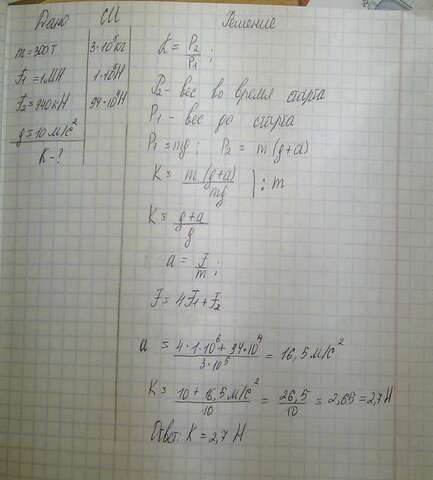 Дано
СИ
Решение
m = 300 т
3·10⁵ кг
F₁ = 1 МН
1·10⁶ Н
F₂ = 940 кН
94·10⁴ Н
g = 10 м/с²
K - ?
K = P₂/P₁ ;
P₂ - вес во время старта
P₁ - вес до старта
P₁ = mg ; P₂ = m(g+a)
K = m(g+a)/mg ) : m
K = g+a/g
a = F/m ;
F = 4F₁ + F₂
a = 4·1·10⁶ + 94·10⁴/3·10⁵ = 16,5 м/с²
K = 10 + 16,5 м/с²/10 = 26,5/10 = 2,65 = 2,7 Н
Ответ: K = 2,7 Н